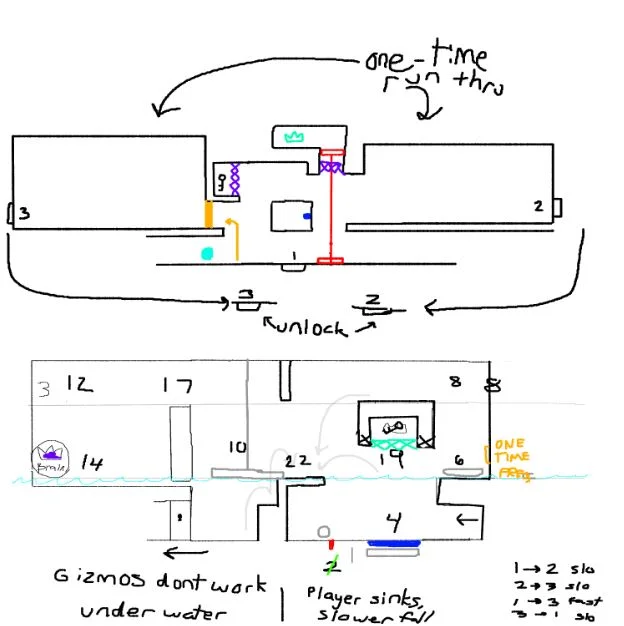 one-time
run thru
3
2
1
3
2
unlock
3
12
17
8
Brain
14
10
22
19
6
ONE
TIME
4
2
1
Gizmos dont work
under water
Player sinks,
slower fall
1→2 slo
2→3 slo
1→3 fast
3→1 slo